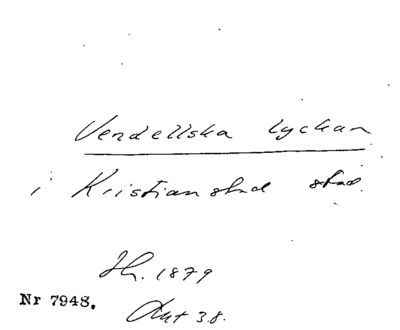 Vendellska lyckan
i Kristianstad stad.
H. 1879
Nr 7948.
Akt 38.